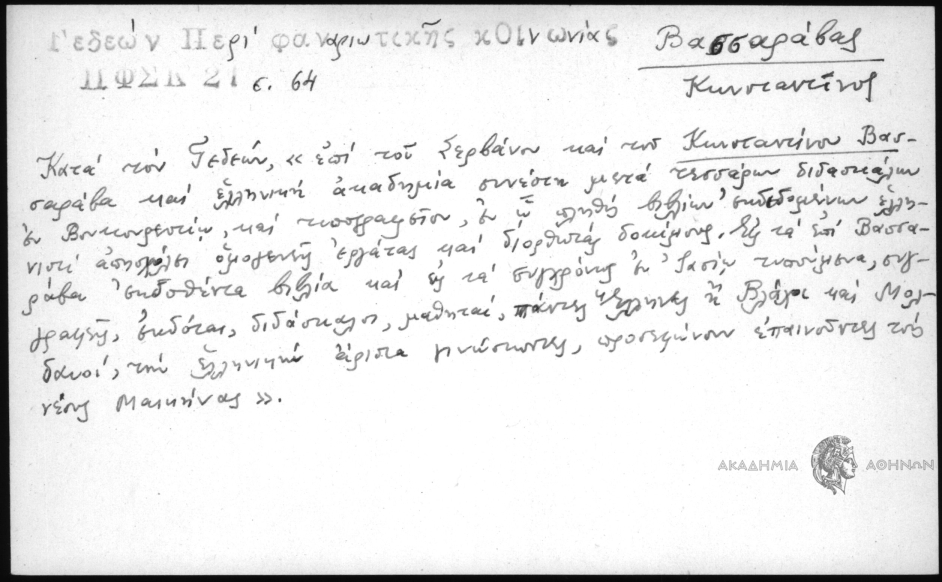 Γεδεών Περί φαναριωτικῆς κοινωνίας
ΠΦΣΚ 21 σ. 64
Βασσαράβας
Κωνσταντῖνος
Κατά τόν Γεδεών, « ἐπί τοῦ Σερβάνου καί τοῦ Κωνσταντίνου Βασ-
σαράβα καί ἑλληνική ἀκαδημία συνέστη μετά τεσσάρων διδασκάλων
ἐν Βουκουρεστίῳ, καί τυπογραφεῖον, ἐν ᾧ πληθύς βιβλίων ἐκδεδομένων ἑλλη-
νιστί ὁμογενεῖς ἐργάτας καί διορθωτάς δοκίμους. Εἰς τά ἐπί Βασσα-
ράβα ἐκδοθέντα βιβλία καί εἰς τά συγχρόνως ἐν Ἰασίῳ τυπούμενα, συγ-
γραφεῖς, ἐκδόται, διδάσκαλοι, μαθηταί, πάντες Ἕλληνες ἤ Βλάχοι καί Μολ-
δαυοί, τήν ἑλληνικήν ἄριστα γινώσκοντες, προσεφώνουν ἐπαινοῦντες τούς
νέους Μαικήνας ».
ΑΚΑΔΗΜΙΑ ΑΘΗΝΩΝ